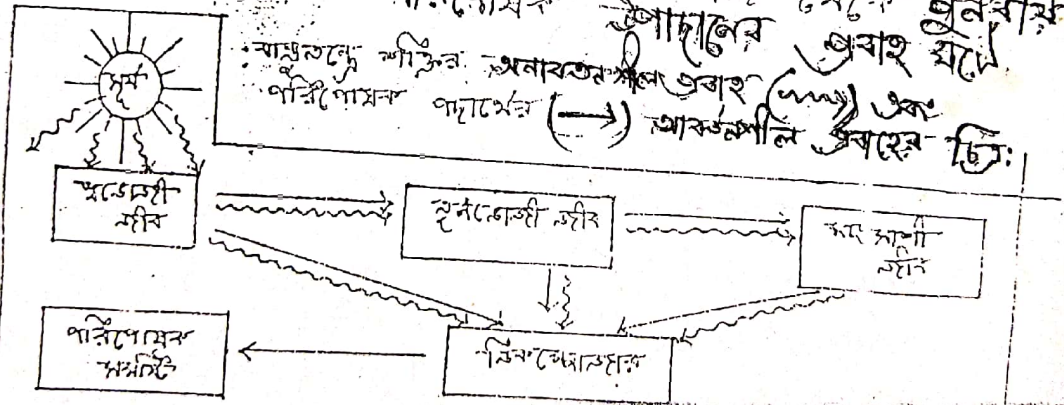 পরিপোষক উপাদানের প্রবাহ ঘটে
পুনরায়
বাস্তুতন্ত্রে শক্তির অনাবর্তনশীল প্রবাহ (〰) এবং
পরিপোষক পদার্থের (⟶) আবর্তনশীল প্রবাহের চিত্র:
সূর্য
স্বভোজী
জীব
তৃনভোজী জীব
মাংসাশী
জীব
পরিপোষক
সমষ্টি
বিকম্পোজার